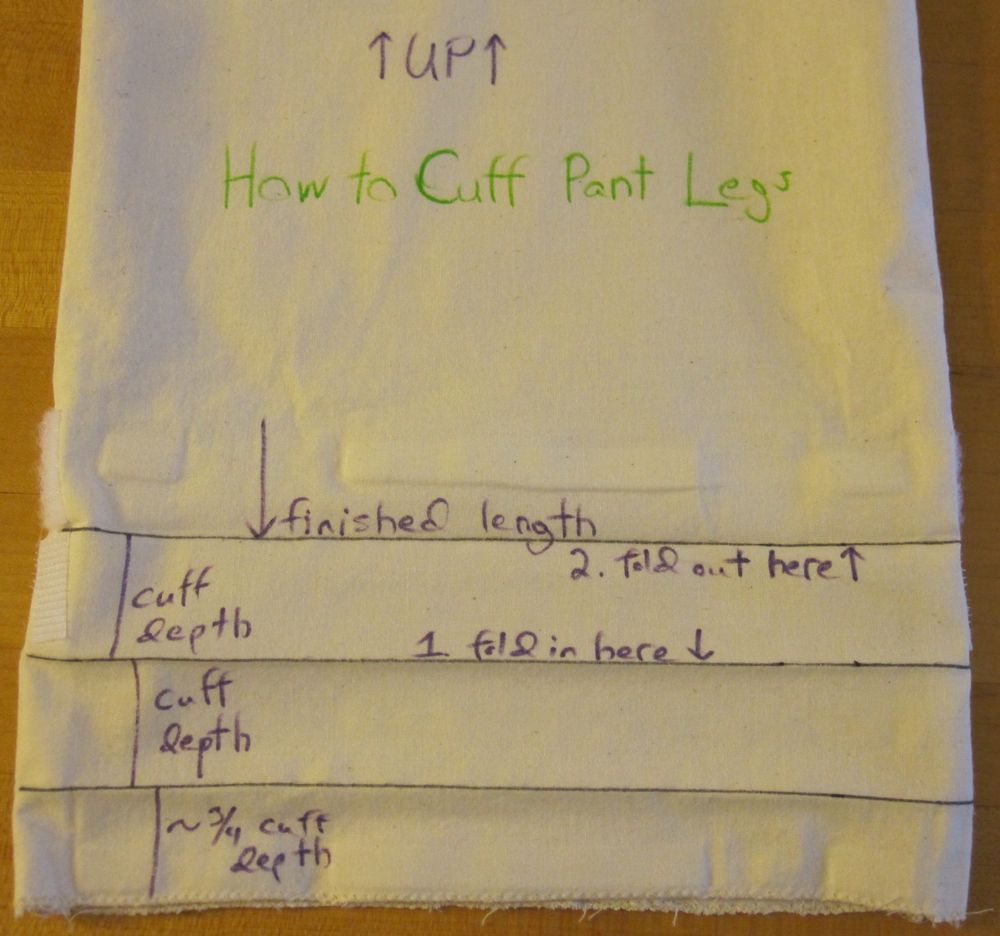 ↑UP↑
How to Cuff Pant Legs
↓finished length
2. fold out here↑
cuff
depth
1 fold in here ↓
cuff
depth
~3/4 cuff
depth